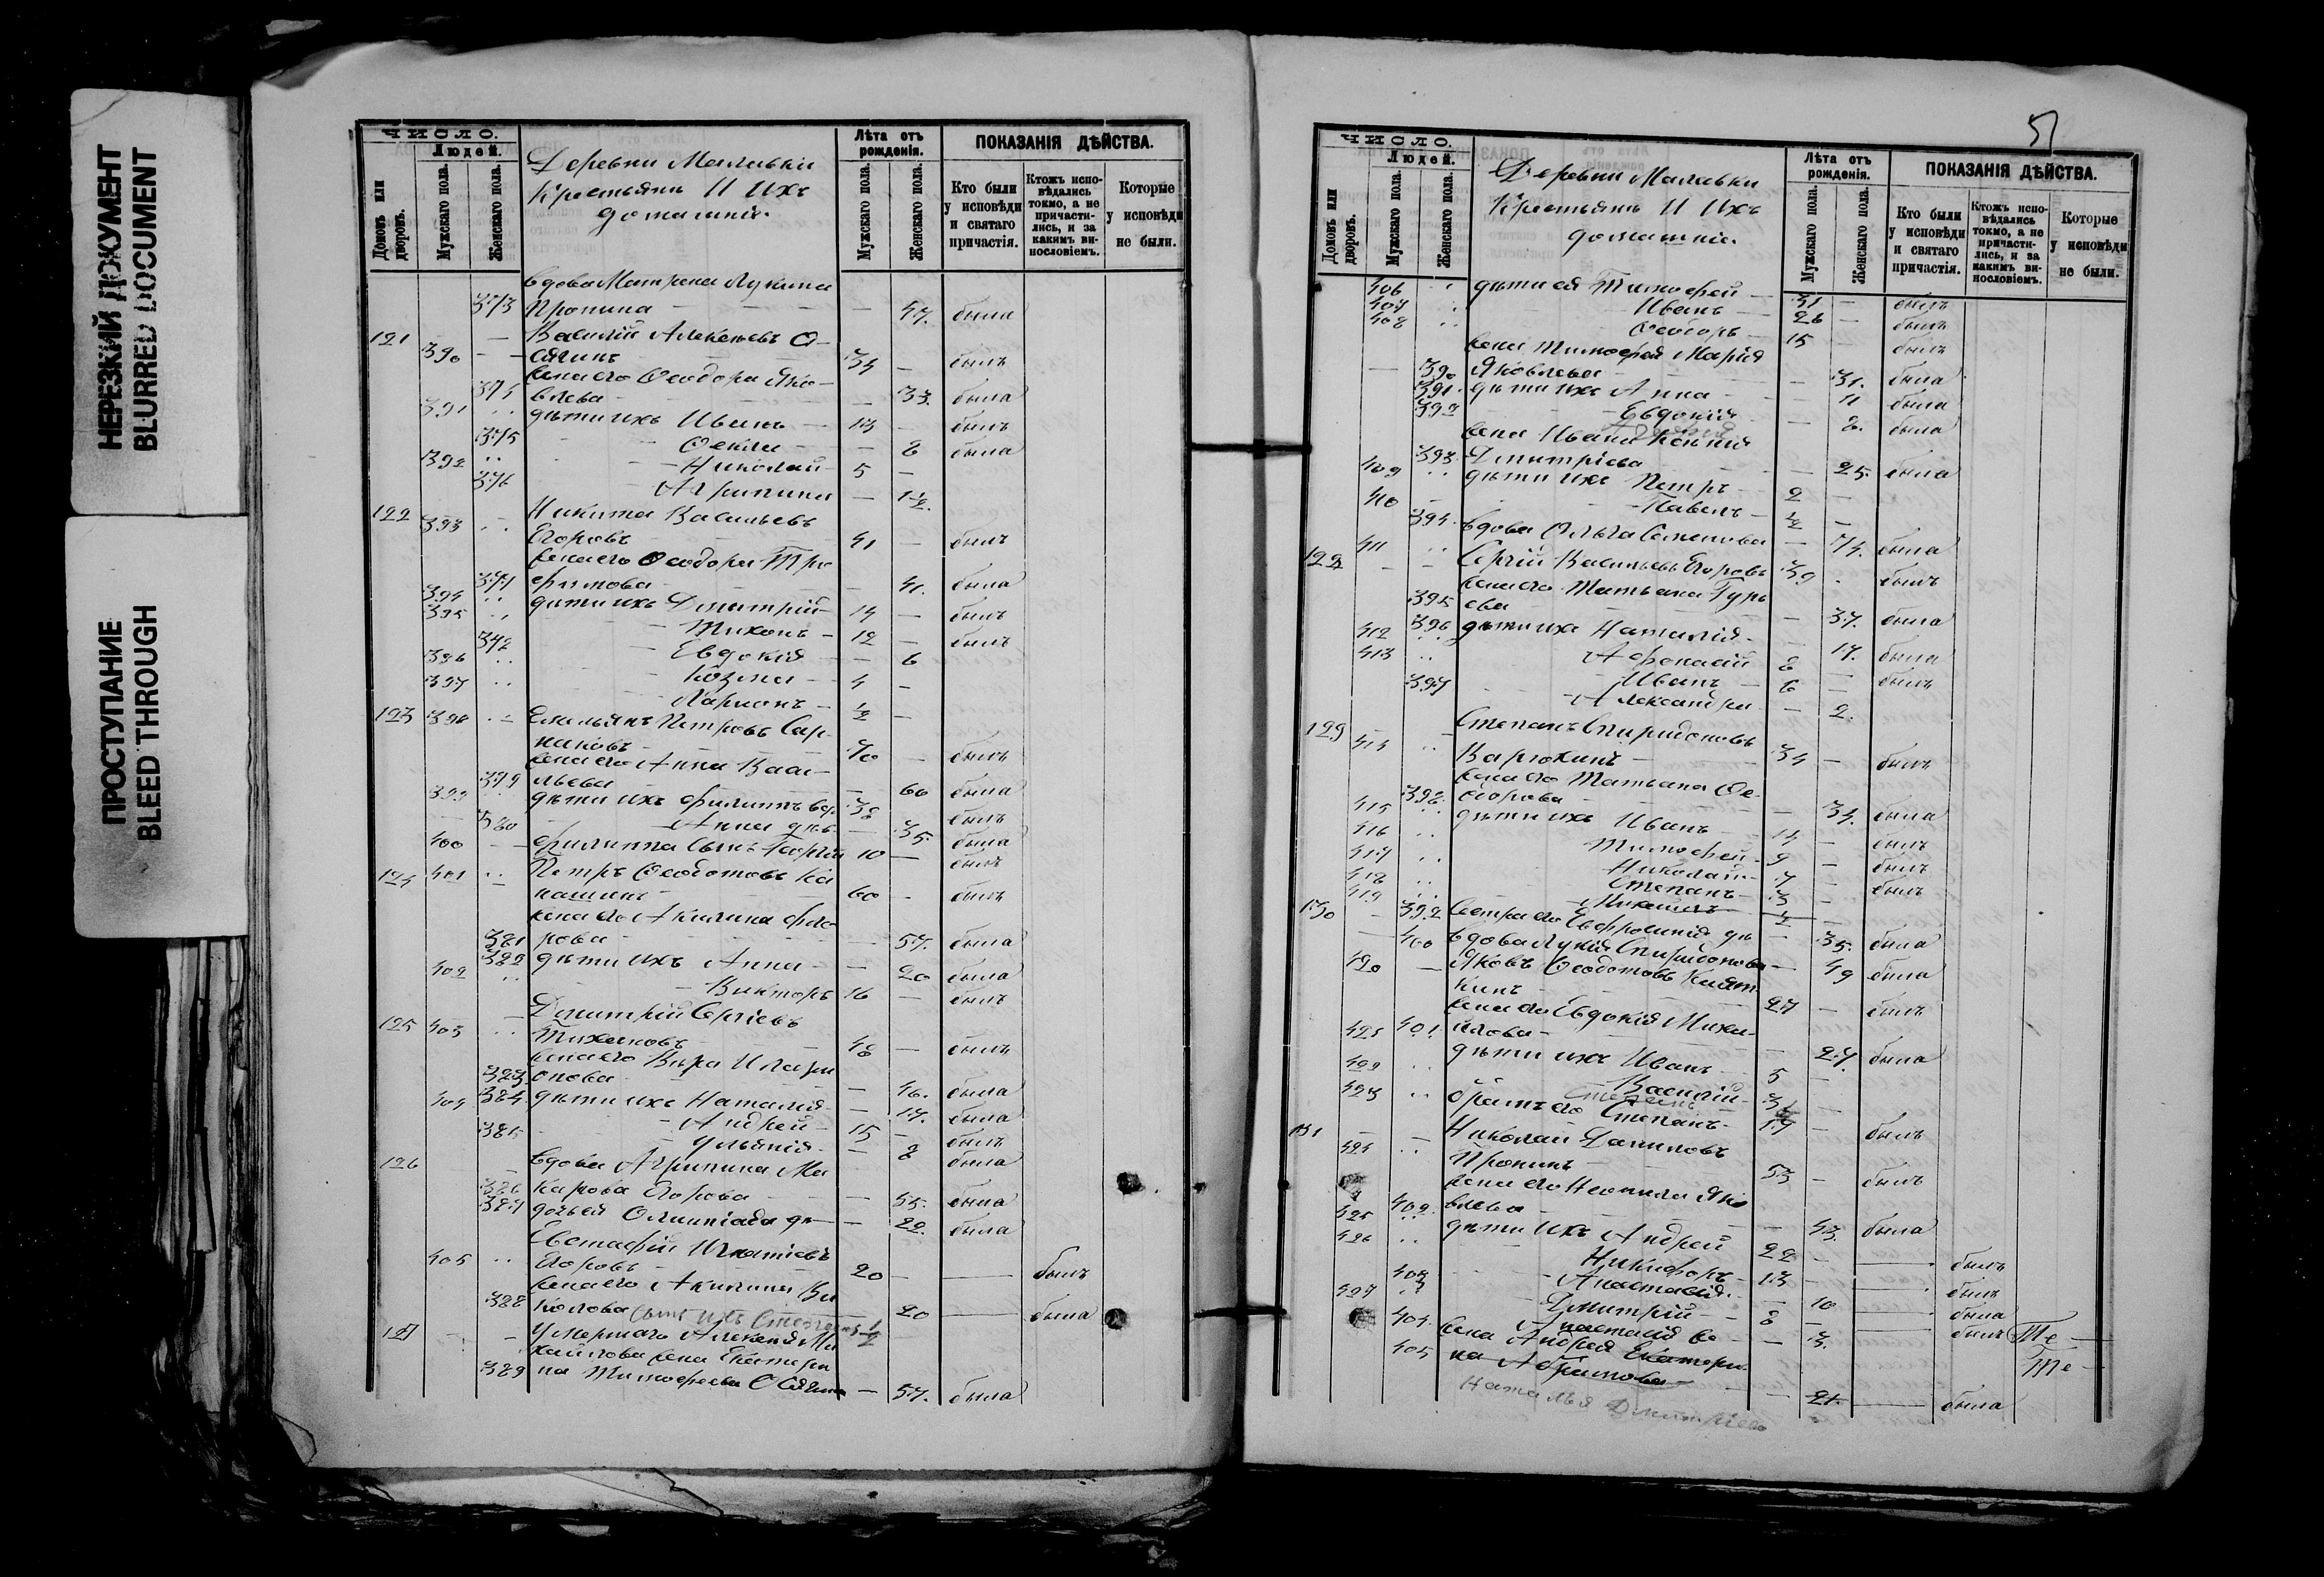 НЕРЕЗКИЙ ДОКУМЕНТ
BLURRED DOCUMENT
ПРОСТУПАНИЕ
BLEED THROUGH
ЧИСЛО.
Людей.
Домовъ или дворовъ.
Мужскаго пола.
Женскаго пола.
Деревни
Крестьяне И ихъ
домашнія.
Лѣта отъ рожденія.
Мужскаго пола.
Женскаго пола.
ПОКАЗАНІЯ ДѢЙСТВА.
Кто были у исповѣди и святаго причастія.
Ктожъ исповѣдались токмо, а не причастились, и за какимъ винословіемъ.
Которые у исповѣди не были.
вдова Матрена Лукина
373 Пронина — 47. была
121 Василій Алексѣевъ О-
390 — сягинъ 34 — былъ
жена его Ѳеодора Яко-
374 влева — 33. была
391 дѣти ихъ Иванъ — 13 — былъ
375 Ѳекла — 8 была
392 Николай — 5 —
376 Агрипина — 1½.
122 Никита Васильевъ
393 Егоровъ 41 — былъ
жена его Ѳеодора Тро-
377 фимова — 41. была
394 дѣти ихъ Дмитрій — 14 — былъ
395 Тихонъ — 12 — былъ
378 Евдокія — 6
396 Козма — 4 —
397 Ларионъ — ½ —
123 398 Емельянъ Петровъ
70 — былъ
жена его Анна Васи-
379 льева — 60 была
399 дѣти ихъ Филиппъ вд. 38 былъ
380 Анна дѣв. — 35. была
400 Филиппа сынъ 10 — былъ
124 401 Петръ Ѳеодотовъ Ка
нашинъ 60 — былъ
жена его Акилина Фло
381 рова — 57. была
382 дѣти ихъ Анна — 20 была
402 Викторъ 16 — былъ
Дмитрій Сергіевъ
125 403 48 — былъ
жена его Вѣра Илари
383 онова — 46. была
384 дѣти ихъ Наталія — 17. была
404 Андрей — 15 — былъ
385 Ульянія — 8 была
126 вдова Агрипина Ма
386 карова Егорова — 55. была
387 дочь ея Олимпіада дѣ — 22. была
Евстафій Игнатіевъ
405 Егоровъ 20 — — былъ
жена его Акилина Ви
388 колова сынъ ихъ — 20 — была
127 Умершаго Алексѣя Ми
хайлова жена Екатери
389 на Тимофеева Осягина — 57. была
51
ЧИСЛО.
Людей.
Домовъ или дворовъ.
Мужскаго пола.
Женскаго пола.
Деревни
Крестьяне И ихъ
домашнія.
Лѣта отъ рожденія.
Мужскаго пола.
Женскаго пола.
ПОКАЗАНІЯ ДѢЙСТВА.
Кто были у исповѣди и святаго причастія.
Ктожъ исповѣдались токмо, а не причастились, и за какимъ винословіемъ.
Которые у исповѣди не были.
406 дѣти ея Тимофей — 31 — былъ
407 Иванъ — 26 — былъ
408 Ѳеодоръ — 15 — былъ
жена Тимофея Марія
390 Яковлева — 31. была
391. дѣти ихъ Анна — 11 была
392 Евдокія — 8. была
жена Ивана Ксенія
393. Дмитріева — 25. была
409 дѣти ихъ Петръ — 2 —
410 Павелъ — ½ —
394. вдова Ольга Семенова — 74. была
411 Сергій Васильевъ Егоровъ 39 былъ
жена его Татьяна Гурь
395 ева — 37. была
396 дѣти ихъ Наталія — 17. была
412 Афонасій 8 — былъ
413 Иванъ — 6 —
397 Александра — 2.
129 Степанъ Спиридоновъ
414 34 — былъ
жена его Татьяна Ѳе-
398 одорова — 34. была
415 дѣти ихъ Иванъ — 14 — былъ
416 Тимофей — 9 — былъ
417 Николай — 7 — былъ
418 Степанъ — 3 —
419
130 399 Сестра его Евфросинія дѣ — 35. была
400 вдова Лукія Спиридонова — 49 была
420 Яковъ Ѳеодотовъ
27 — былъ
жена его Евдокія Миха-
401. йлова — 27. была
421 дѣти ихъ Иванъ 5 —
422 Василій — 3 —
423 братъ его Степанъ — 17 — былъ
131 Николай Даниловъ
424 Пронинъ 53 — былъ
жена его Неонила Яко
402. влева — 43. была
425 дѣти ихъ Андрей 22 — — былъ
426 Никифоръ — 13 — — былъ
403 Анастасія — 10 — была
427 Дмитрій — 8 — — былъ
404. Анастасія — 3.
жена Андрея Екатери-
405 на Абрамова — 21. — была
Наталья Дмитріева